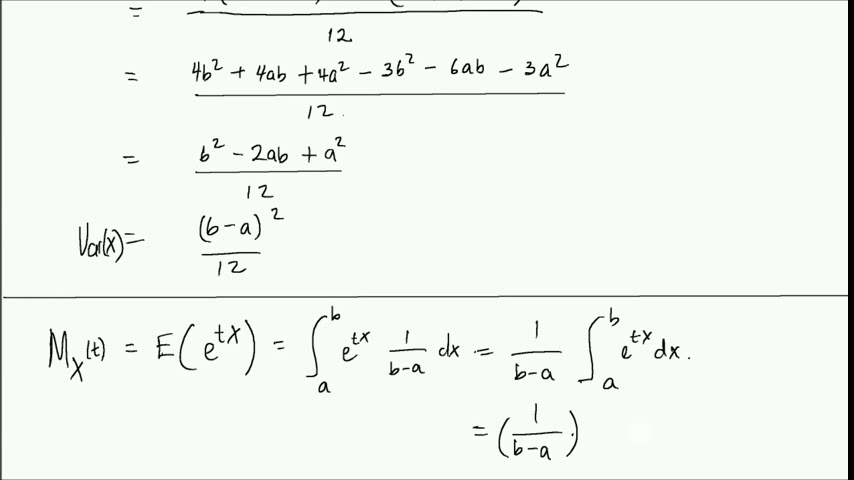 = 12
= 4b² + 4ab + 4a² - 3b² - 6ab - 3a² / 12.
= b² - 2ab + a² / 12
Var(X) = (b-a)² / 12
M_X(t) = E(e^{tX}) = ∫_a^b e^{tx} 1/(b-a) dx = 1/(b-a) ∫_a^b e^{tx} dx.
= (1/(b-a)).